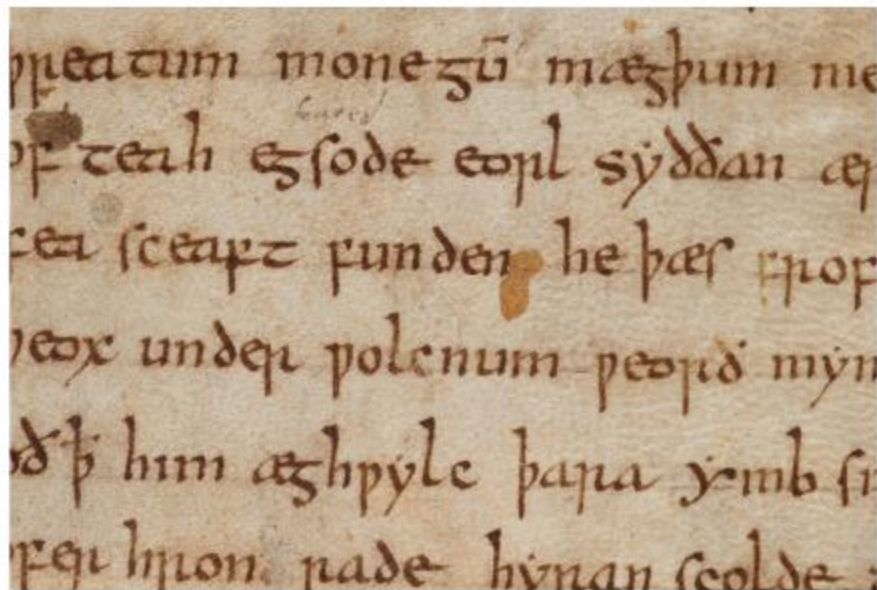 þreatum monegū mægþum me
of teah egsode eorl sẏððan ær
fea sceaft funden he þæs frof
ƿeox under ƿolcnum ƿeorð mẏn
oð ꝥ him æghƿẏlc þara ẏmb si
ofer hron rade hẏran scolde